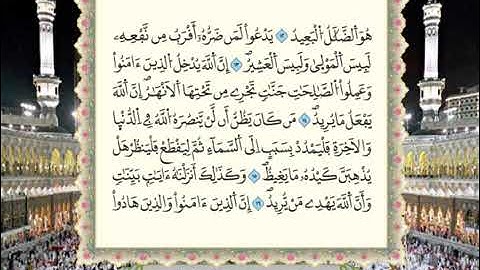 هُوَ ٱلضَّلَٰلُ ٱلۡبَعِيدُ ١٢ يَدۡعُواْ لَمَن ضَرُّهُۥٓ أَقۡرَبُ مِن نَّفۡعِهِۦۚ
لَبِئۡسَ ٱلۡمَوۡلَىٰ وَلَبِئۡسَ ٱلۡعَشِيرُ ١٣ إِنَّ ٱللَّهَ يُدۡخِلُ ٱلَّذِينَ ءَامَنُواْ
وَعَمِلُواْ ٱلصَّٰلِحَٰتِ جَنَّٰتٖ تَجۡرِي مِن تَحۡتِهَا ٱلۡأَنۡهَٰرُۚ إِنَّ ٱللَّهَ
يَفۡعَلُ مَا يُرِيدُ ١٤ مَن كَانَ يَظُنُّ أَن لَّن يَنصُرَهُ ٱللَّهُ فِي ٱلدُّنۡيَا
وَٱلۡأٓخِرَةِ فَلۡيَمۡدُدۡ بِسَبَبٍ إِلَى ٱلسَّمَآءِ ثُمَّ لۡيَقۡطَعۡ فَلۡيَنظُرۡ هَلۡ
يُذۡهِبَنَّ كَيۡدُهُۥ مَا يَغِيظُ ١٥ وَكَذَٰلِكَ أَنزَلۡنَٰهُ ءَايَٰتِۭ بَيِّنَٰتٖ
وَأَنَّ ٱللَّهَ يَهۡدِي مَن يُرِيدُ ١٦ إِنَّ ٱلَّذِينَ ءَامَنُواْ وَٱلَّذِينَ هَادُواْ